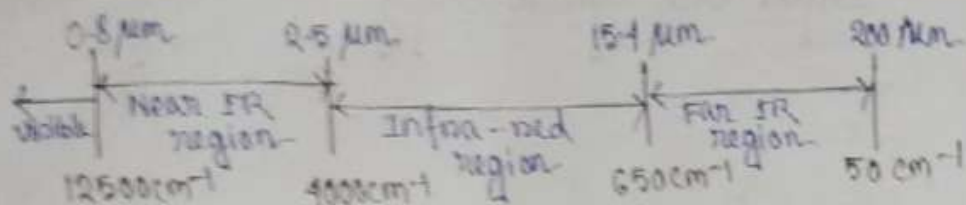 0.8 µm 2.5 µm 15.4 µm 200 µm
visible Near IR region Infra-red region Far IR region
12500cm⁻¹ 4000cm⁻¹ 650cm⁻¹ 50 cm⁻¹